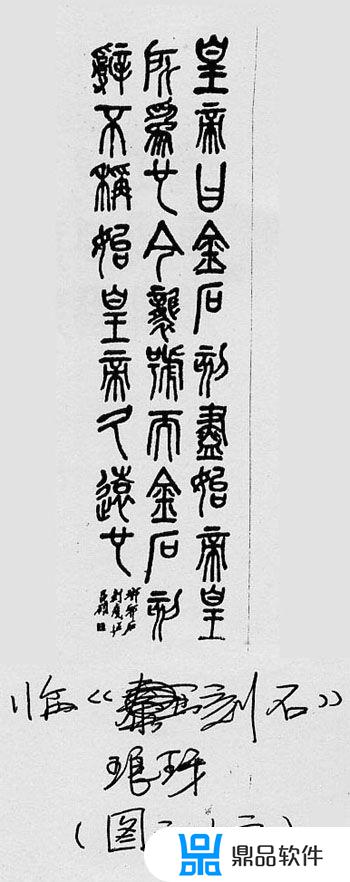 皇帝曰金石刻盡始帝皇
所為也今襲號而金石刻
辭不稱始皇帝久遠也
临《刻石》
琅琊
(图
鼎品软件